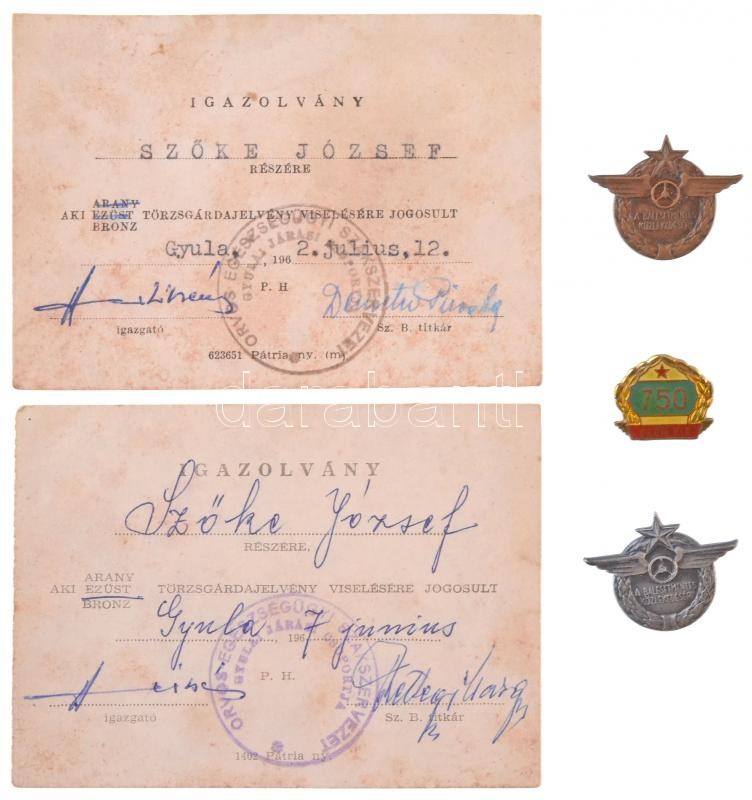 IGAZOLVÁNY
SZŐKE JÓZSEF
RÉSZÉRE
ARANY
AKI EZÜST TÖRZSGÁRDAJELVÉNY VISELÉSÉRE JOGOSULT
BRONZ
Gyula, 1962. július, 12.
P. H
igazgató Sz. B. titkár
623651 Pátria ny. (m)
ORVOS EGÉSZSÉGÜGYI SZAKSZERVEZET
GYULAI JÁRÁSI CSOPORTJA
darabanth
IGAZOLVÁNY
Szőke József
RÉSZÉRE.
ARANY
AKI EZÜST TÖRZSGÁRDAJELVÉNY VISELÉSÉRE JOGOSULT
BRONZ
Gyula, 1967 junius
P. H.
igazgató Sz. B. titkár
1402 Pátria ny.
ORVOS EGÉSZSÉGÜGYI SZAKSZERVEZET
GYULAI JÁRÁSI CSOPORTJA
A BALESETMENTES
KÖZLEKEDÉSÉRT
750
A BALESETMENTES
KÖZLEKEDÉSÉRT